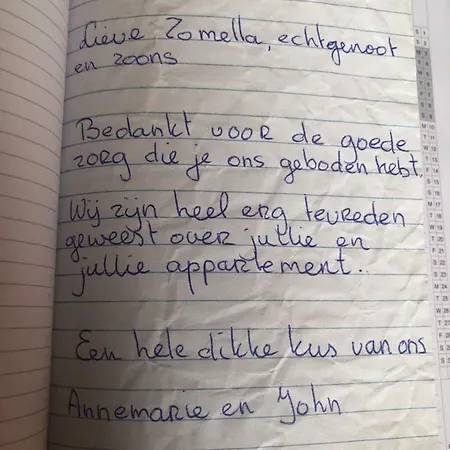 Lieve Zomella, echtgenoot
en zoons
Bedankt voor de goede
zorg die je ons geboden hebt.
Wij zijn heel erg tevreden
geweest over jullie en
jullie appartement..
Een hele dikke kus van ons
Annemarie en John